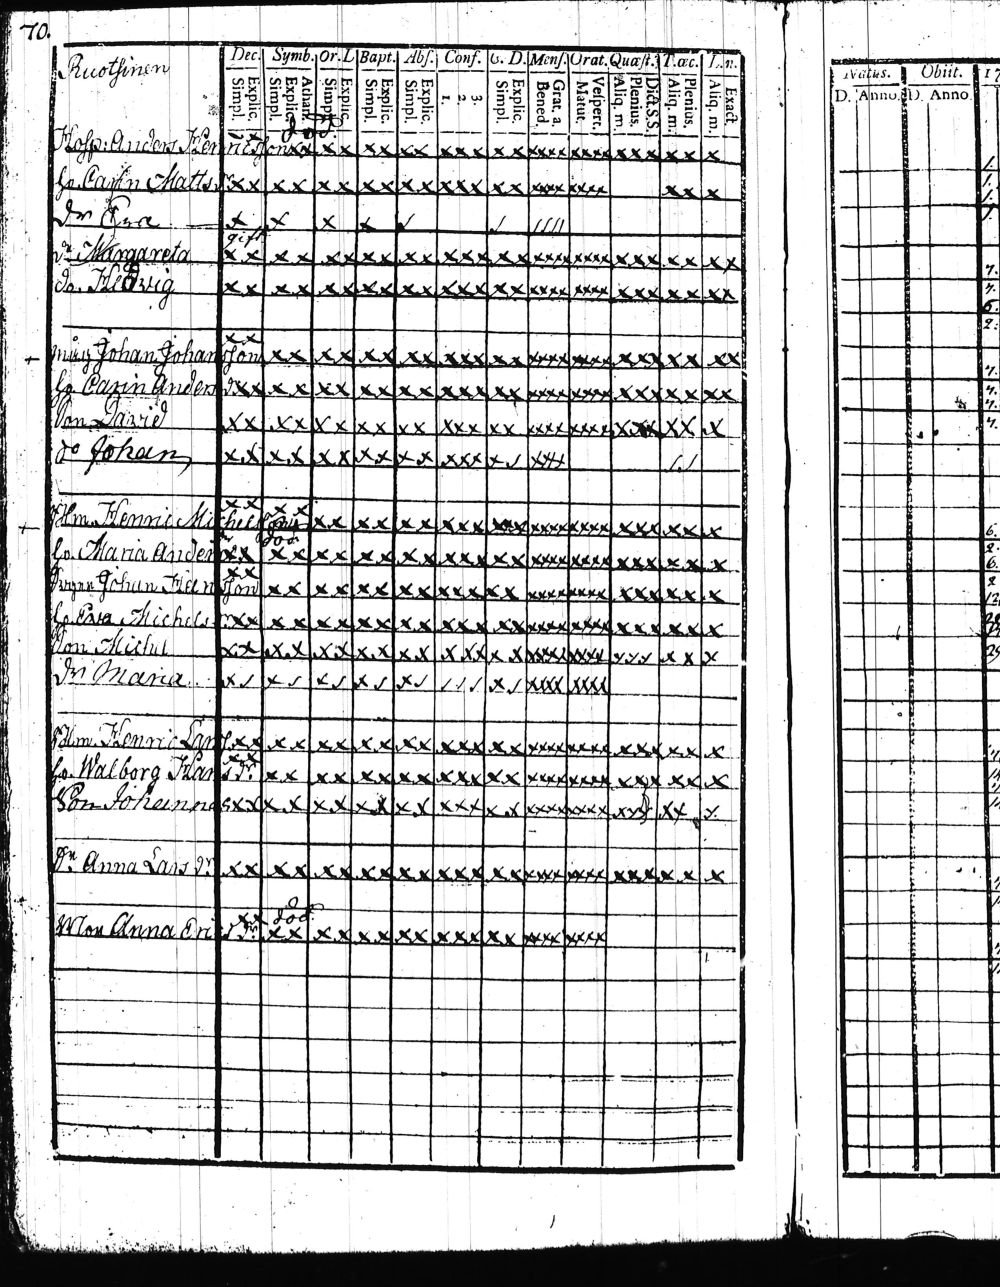 70.
Ruotsinen
Dec. Symb. Or. D. Bapt. Abs. Conf. C. D. Mens. Orat. Quæst. T. œc. L. n.
Simpl. Explic. Simpl. Explic. Athan. Simpl. Explic. Simpl. Explic. Simpl. Explic. 1. 2. 3. Simpl. Explic. Bened. Grat. a. Matut. Vespert. Aliq. m. Plenius. Dict. S.S. Aliq. m. Plenius. Aliq. m. Exact.
Natus. Obiit. 17
D. Anno. D. Anno.
död
Hosp: Anders Henricsson
Ho. Carin Matts dr
dr Eva
gift
dr Margareta
do. Hedvig
Johan Johansson
Ho Carin Anders dr
Son David
do Johan
Hm. Henric Michelsson
död
Ho. Maria Anders dr
Johan Hansson
Ho Eva Michels dr
Son Michel
dr Maria
Hm. Henric Lars
Ho. Walborg Hans dr
Son Johannes
Dr. Anna Lars dr
död
Mor Anna Erics dr